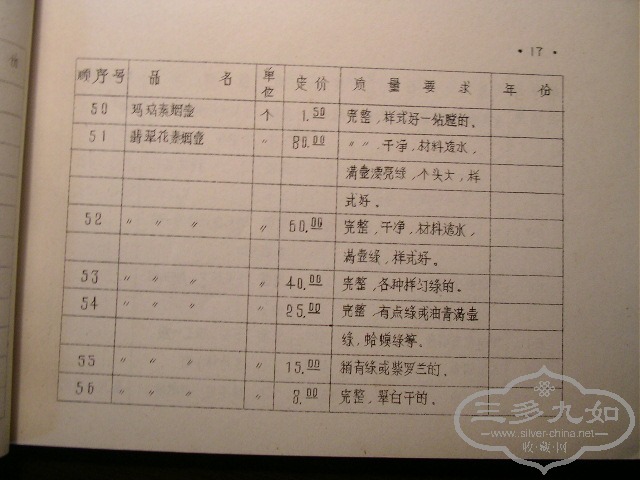 ·17·
顺序号 品 名 单位 定价 质量要求 年份
50 玛瑙素烟壶 个 1.50 完整,样式好一钻膛的。
51 翡翠花素烟壶 〃 80.00 〃〃,干净,材料透水,
满壶漂亮绿,个头大,样
式好。
52 〃 〃 〃 〃 50.00 完整,干净,材料透水,
满壶绿,样式好。
53 〃 〃 〃 〃 40.00 完整,各种样匀绿的。
54 〃 〃 〃 〃 25.00 完整,有点绿或油青满壶
绿,蛤蟆绿等。
55 〃 〃 〃 〃 15.00 稍有绿或紫罗兰的。
56 〃 〃 〃 〃 8.00 完整,翠白干的。
三多九如
www.silver-china.net
收·藏·网